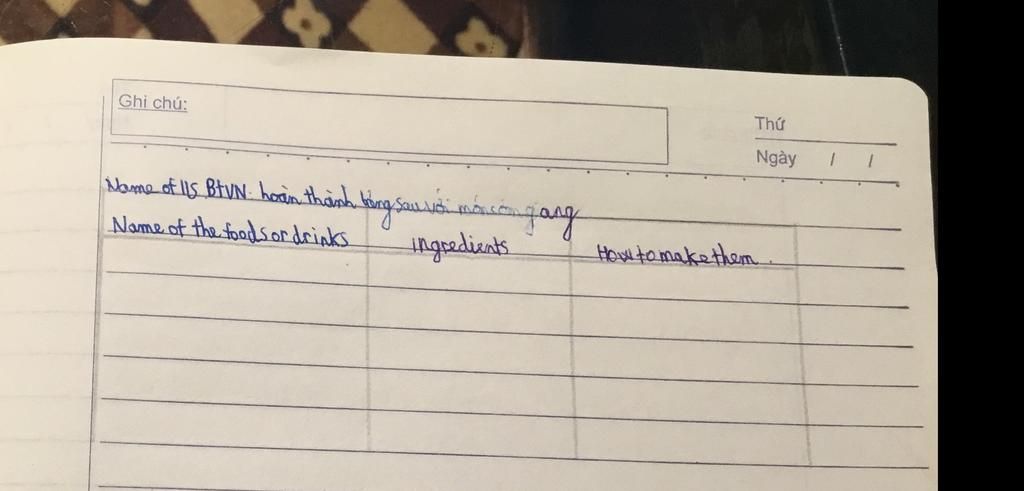 Ghi chú:
Thứ
Ngày / /
Name of US BTVN: hoàn thành bảng sau với món
Name of the foods or drinks ingredients How to make them.